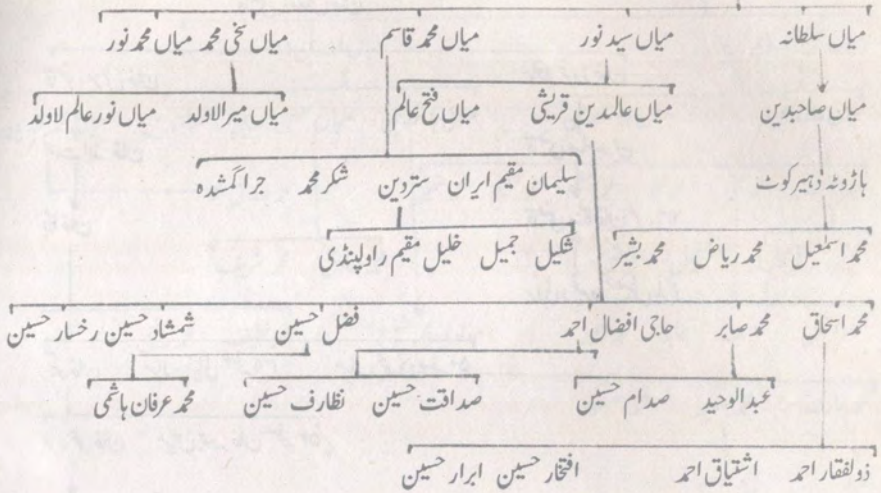 میاں سلطانہ میاں سید نور میاں محمد قاسم میاں سخی محمد میاں محمد نور
میاں صاحبدین میاں عالمدین قریشی میاں فتح عالم میاں میرالاولد میاں نور عالم لاولد
ہاڑوٹہ دہیرکوٹ سلیمان مقیم ایران ستردین شکر محمد جراگمشدہ
محمد اسمٰعیل محمد ریاض محمد بشیر شکیل جمیل خلیل مقیم راولپنڈی
محمد اسحاق محمد صابر حاجی افضال احمد فضل حسین شمشاد حسین رخسار حسین
عبدالوحید صدام حسین صداقت حسین نظارف حسین محمد عرفان ہاشمی
ذولفقار احمد اشتیاق احمد افتخار حسین ابرار حسین